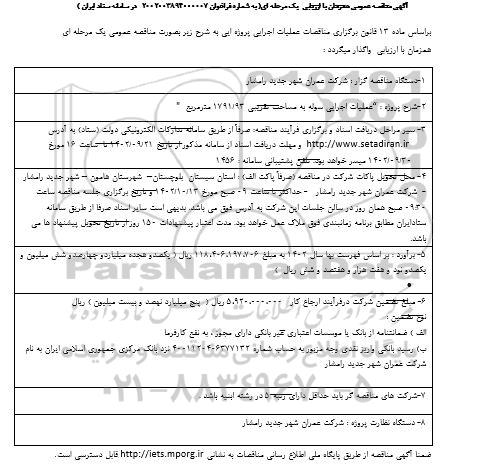 آگهی مناقصه عمومی همزمان با ارزیابی یک مرحله ای( به شماره فراخوان ۲۰۰۲۰۰۳۸۹۴۰۰۰۰۰۷ در سامانه ستاد ایران )
براساس ماده ۱۳ قانون برگزاری مناقصات عملیات اجرایی پروژه ایی به شرح زیر بصورت مناقصه عمومی یک مرحله ای
همزمان با ارزیابی واگذار میگردد :
۱-دستگاه مناقصه گزار : شرکت عمران شهر جدید رامشار
۲-شرح پروژه : "عملیات اجرایی سوله به مساحت تقریبی ۱۷۹۱/۹۳ مترمربع "
۳- سیر مراحل دریافت اسناد و برگزاری فرآیند مناقصه: صرفاً از طریق سامانه تدارکات الکترونیکی دولت (ستاد) به آدرس
http://www.setadiran.ir و مهلت دریافت اسناد از سامانه مذکور از تاریخ ۱۴۰۲/۰۹/۲۱ تا ساعت ۱۶ مورخ
۱۴۰۲/۰۹/۳۰ میسر خواهد بود. تلفن پشتیبانی سامانه : ۱۴۵۶
۴- محل تحویل پاکات شرکت در مناقصه (صرفاً پاکت الف) : استان سیستان بلوچستان– شهرستان هامون – شهر جدید رامشار
– شرکت عمران شهر جدید رامشار - حداکثر تا ساعت ۰۹ صبح مورخ ۱۴۰۲/۱۰/۱۳ و تاریخ برگزاری جلسه مناقصه ساعت
۰۹:۳۰ صبح همان روز در سالن جلسات این شرکت به آدرس فوق می باشد. بدیهی است سایر اسناد صرفا از طریق سامانه
ستادایران مطابق برنامه زمانبندی فوق ملاک عمل خواهد بود. مدت اعتبار پیشنهادات ۱۵۰ روز از تاریخ تحویل پیشنهاد ها می
باشد.
۵- برآورد : بر اساس فهرست بها سال ۱۴۰۲ به مبلغ ۱۱۸،۴۰۶،۱۹۷،۷۰۶ ریال ( یکصدو هجده میلیاردو چهارصدو شش میلیون و
یکصدو نود و هفت هزار و هفتصد و شش ریال )
•
۶- مبلغ تضمین شرکت درفرآیند ارجاع کار ۵،۹۲۰،۰۰۰،۰۰۰ ریال ( پنج میلیارد نهصد و بیست میلیون ) ریال
نوع تضمین :
الف ) ضمانتنامه از بانک یا موسسات اعتباری غیر بانکی دارای مجوز ، به نفع کارفرما
ب) رسید بانکی واریز نقدی وجه مزبور به حساب شماره ۴۰۰۱۱۲۰۴۰۶۳۷۷۱۳۲ نزد بانک مرکزی جمهوری اسلامی ایران به نام
شرکت عمران شهر جدید رامشار
۷-شرکت های مناقصه گر باید حداقل دارای رتبه ۵ در رشته ابنیه باشد .
۸- دستگاه نظارت پروژه : شرکت عمران شهر جدید رامشار
ضمنا آگهی مناقصه از طریق پایگاه ملی اطلاع رسانی مناقصات به نشانی http://iets.mporg.ir قابل دسترسی است.
ParsNamadData
۰۲۱-۸۸۳۴۹۶۷۰-۵